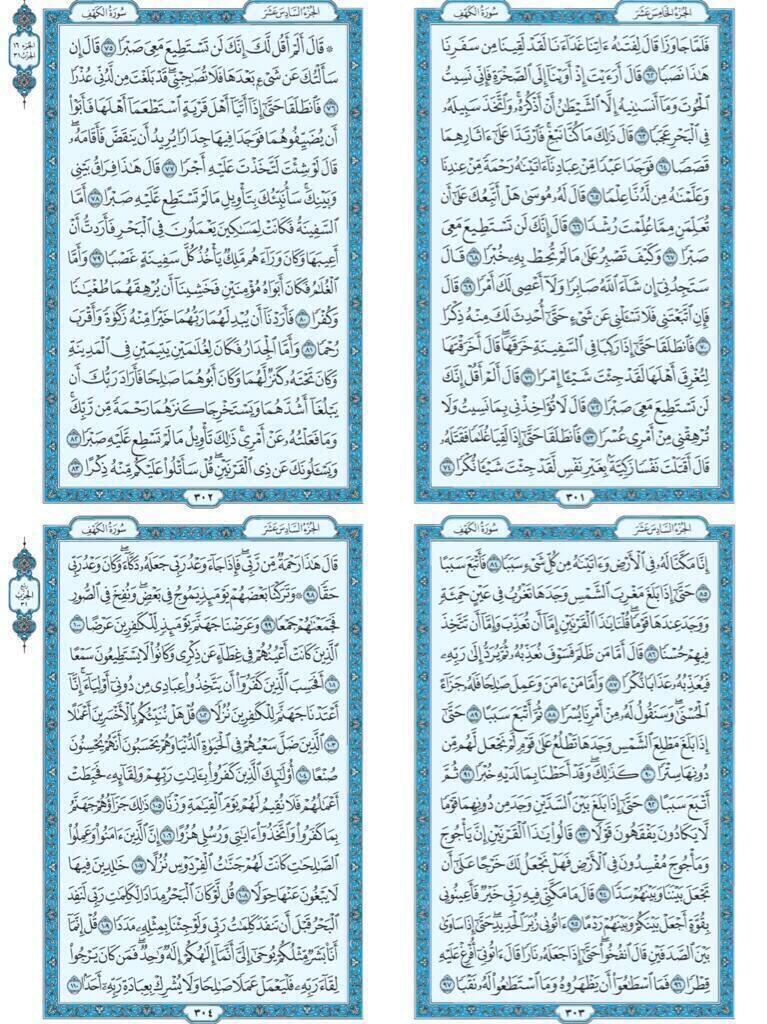 سُورَةُ الكَهْفِ الجُزْءُ الخَامِسَ عَشَرَ
فَلَمَّا جَاوَزَا قَالَ لِفَتَىٰهُ ءَاتِنَا غَدَآءَنَا لَقَدْ لَقِينَا مِن سَفَرِنَا
هَٰذَا نَصَبًا ٦٢ قَالَ أَرَءَيْتَ إِذْ أَوَيْنَآ إِلَى ٱلصَّخْرَةِ فَإِنِّي نَسِيتُ
ٱلْحُوتَ وَمَآ أَنسَىٰنِيهُ إِلَّا ٱلشَّيْطَٰنُ أَنْ أَذْكُرَهُۥۚ وَٱتَّخَذَ سَبِيلَهُۥ
فِي ٱلْبَحْرِ عَجَبًا ٦٣ قَالَ ذَٰلِكَ مَا كُنَّا نَبْغِۚ فَٱرْتَدَّا عَلَىٰٓ ءَاثَارِهِمَا
قَصَصًا ٦٤ فَوَجَدَا عَبْدًا مِّنْ عِبَادِنَآ ءَاتَيْنَٰهُ رَحْمَةً مِّنْ عِندِنَا
وَعَلَّمْنَٰهُ مِن لَّدُنَّا عِلْمًا ٦٥ قَالَ لَهُۥ مُوسَىٰ هَلْ أَتَّبِعُكَ عَلَىٰٓ أَن
تُعَلِّمَنِ مِمَّا عُلِّمْتَ رُشْدًا ٦٦ قَالَ إِنَّكَ لَن تَسْتَطِيعَ مَعِيَ
صَبْرًا ٦٧ وَكَيْفَ تَصْبِرُ عَلَىٰ مَا لَمْ تُحِطْ بِهِۦ خُبْرًا ٦٨ قَالَ
سَتَجِدُنِيٓ إِن شَآءَ ٱللَّهُ صَابِرًا وَلَآ أَعْصِي لَكَ أَمْرًا ٦٩ قَالَ
فَإِنِ ٱتَّبَعْتَنِي فَلَا تَسْـَٔلْنِي عَن شَيْءٍ حَتَّىٰٓ أُحْدِثَ لَكَ مِنْهُ ذِكْرًا
٧٠ فَٱنطَلَقَا حَتَّىٰٓ إِذَا رَكِبَا فِي ٱلسَّفِينَةِ خَرَقَهَاۖ قَالَ أَخَرَقْتَهَا
لِتُغْرِقَ أَهْلَهَا لَقَدْ جِئْتَ شَيْـًٔا إِمْرًا ٧١ قَالَ أَلَمْ أَقُلْ إِنَّكَ
لَن تَسْتَطِيعَ مَعِيَ صَبْرًا ٧٢ قَالَ لَا تُؤَاخِذْنِي بِمَا نَسِيتُ وَلَا
تُرْهِقْنِي مِنْ أَمْرِي عُسْرًا ٧٣ فَٱنطَلَقَا حَتَّىٰٓ إِذَا لَقِيَا غُلَٰمًا فَقَتَلَهُۥ
قَالَ أَقَتَلْتَ نَفْسًا زَكِيَّةًۢ بِغَيْرِ نَفْسٍ لَّقَدْ جِئْتَ شَيْـًٔا نُّكْرًا ٧٤
٣٠١
سُورَةُ الكَهْفِ الجُزْءُ السَّادِسَ عَشَرَ
الجزء ١٦
الحزب ٣١
۞ قَالَ أَلَمْ أَقُل لَّكَ إِنَّكَ لَن تَسْتَطِيعَ مَعِيَ صَبْرًا ٧٥ قَالَ إِن
سَأَلْتُكَ عَن شَيْءٍۭ بَعْدَهَا فَلَا تُصَٰحِبْنِيۖ قَدْ بَلَغْتَ مِن لَّدُنِّي عُذْرًا
٧٦ فَٱنطَلَقَا حَتَّىٰٓ إِذَآ أَتَيَآ أَهْلَ قَرْيَةٍ ٱسْتَطْعَمَآ أَهْلَهَا فَأَبَوْا۟
أَن يُضَيِّفُوهُمَا فَوَجَدَا فِيهَا جِدَارًا يُرِيدُ أَن يَنقَضَّ فَأَقَامَهُۥۖ
قَالَ لَوْ شِئْتَ لَتَّخَذْتَ عَلَيْهِ أَجْرًا ٧٧ قَالَ هَٰذَا فِرَاقُ بَيْنِي
وَبَيْنِكَۚ سَأُنَبِّئُكَ بِتَأْوِيلِ مَا لَمْ تَسْتَطِع عَّلَيْهِ صَبْرًا ٧٨ أَمَّا
ٱلسَّفِينَةُ فَكَانَتْ لِمَسَٰكِينَ يَعْمَلُونَ فِي ٱلْبَحْرِ فَأَرَدتُّ أَنْ
أَعِيبَهَا وَكَانَ وَرَآءَهُم مَّلِكٌ يَأْخُذُ كُلَّ سَفِينَةٍ غَصْبًا ٧٩ وَأَمَّا
ٱلْغُلَٰمُ فَكَانَ أَبَوَاهُ مُؤْمِنَيْنِ فَخَشِينَآ أَن يُرْهِقَهُمَا طُغْيَٰنًا
وَكُفْرًا ٨٠ فَأَرَدْنَآ أَن يُبْدِلَهُمَا رَبُّهُمَا خَيْرًا مِّنْهُ زَكَوٰةً وَأَقْرَبَ
رُحْمًا ٨١ وَأَمَّا ٱلْجِدَارُ فَكَانَ لِغُلَٰمَيْنِ يَتِيمَيْنِ فِي ٱلْمَدِينَةِ
وَكَانَ تَحْتَهُۥ كَنزٌ لَّهُمَا وَكَانَ أَبُوهُمَا صَٰلِحًا فَأَرَادَ رَبُّكَ أَن
يَبْلُغَآ أَشُدَّهُمَا وَيَسْتَخْرِجَا كَنزَهُمَا رَحْمَةً مِّن رَّبِّكَۚ
وَمَا فَعَلْتُهُۥ عَنْ أَمْرِيۚ ذَٰلِكَ تَأْوِيلُ مَا لَمْ تَسْطِع عَّلَيْهِ صَبْرًا ٨٢
وَيَسْـَٔلُونَكَ عَن ذِي ٱلْقَرْنَيْنِۖ قُلْ سَأَتْلُوا۟ عَلَيْكُم مِّنْهُ ذِكْرًا ٨٣
٣٠٢
سُورَةُ الكَهْفِ الجُزْءُ السَّادِسَ عَشَرَ
إِنَّا مَكَّنَّا لَهُۥ فِي ٱلْأَرْضِ وَءَاتَيْنَٰهُ مِن كُلِّ شَيْءٍ سَبَبًا ٨٤ فَأَتْبَعَ سَبَبًا
٨٥ حَتَّىٰٓ إِذَا بَلَغَ مَغْرِبَ ٱلشَّمْسِ وَجَدَهَا تَغْرُبُ فِي عَيْنٍ حَمِئَةٍ
وَوَجَدَ عِندَهَا قَوْمًاۗ قُلْنَا يَٰذَا ٱلْقَرْنَيْنِ إِمَّآ أَن تُعَذِّبَ وَإِمَّآ أَن تَتَّخِذَ
فِيهِمْ حُسْنًا ٨٦ قَالَ أَمَّا مَن ظَلَمَ فَسَوْفَ نُعَذِّبُهُۥ ثُمَّ يُرَدُّ إِلَىٰ رَبِّهِۦ
فَيُعَذِّبُهُۥ عَذَابًا نُّكْرًا ٨٧ وَأَمَّا مَنْ ءَامَنَ وَعَمِلَ صَٰلِحًا فَلَهُۥ جَزَآءً
ٱلْحُسْنَىٰۖ وَسَنَقُولُ لَهُۥ مِنْ أَمْرِنَا يُسْرًا ٨٨ ثُمَّ أَتْبَعَ سَبَبًا ٨٩ حَتَّىٰٓ
إِذَا بَلَغَ مَطْلِعَ ٱلشَّمْسِ وَجَدَهَا تَطْلُعُ عَلَىٰ قَوْمٍ لَّمْ نَجْعَل لَّهُم مِّن
دُونِهَا سِتْرًا ٩٠ كَذَٰلِكَۖ وَقَدْ أَحَطْنَا بِمَا لَدَيْهِ خُبْرًا ٩١ ثُمَّ
أَتْبَعَ سَبَبًا ٩٢ حَتَّىٰٓ إِذَا بَلَغَ بَيْنَ ٱلسَّدَّيْنِ وَجَدَ مِن دُونِهِمَا قَوْمًا
لَّا يَكَادُونَ يَفْقَهُونَ قَوْلًا ٩٣ قَالُوا۟ يَٰذَا ٱلْقَرْنَيْنِ إِنَّ يَأْجُوجَ
وَمَأْجُوجَ مُفْسِدُونَ فِي ٱلْأَرْضِ فَهَلْ نَجْعَلُ لَكَ خَرْجًا عَلَىٰٓ أَن
تَجْعَلَ بَيْنَنَا وَبَيْنَهُمْ سَدًّا ٩٤ قَالَ مَا مَكَّنِّي فِيهِ رَبِّي خَيْرٌ فَأَعِينُونِي
بِقُوَّةٍ أَجْعَلْ بَيْنَكُمْ وَبَيْنَهُمْ رَدْمًا ٩٥ ءَاتُونِي زُبَرَ ٱلْحَدِيدِۖ حَتَّىٰٓ إِذَا سَاوَىٰ
بَيْنَ ٱلصَّدَفَيْنِ قَالَ ٱنفُخُوا۟ۖ حَتَّىٰٓ إِذَا جَعَلَهُۥ نَارًا قَالَ ءَاتُونِيٓ أُفْرِغْ عَلَيْهِ
قِطْرًا ٩٦ فَمَا ٱسْطَٰعُوٓا۟ أَن يَظْهَرُوهُ وَمَا ٱسْتَطَٰعُوا۟ لَهُۥ نَقْبًا ٩٧
٣٠٣
سُورَةُ الكَهْفِ الجُزْءُ السَّادِسَ عَشَرَ
ربع
الحزب
٣١
قَالَ هَٰذَا رَحْمَةٌ مِّن رَّبِّيۖ فَإِذَا جَآءَ وَعْدُ رَبِّي جَعَلَهُۥ دَكَّآءَۖ وَكَانَ وَعْدُ رَبِّي
حَقًّا ٩٨ ۞ وَتَرَكْنَا بَعْضَهُمْ يَوْمَئِذٍ يَمُوجُ فِي بَعْضٍۖ وَنُفِخَ فِي ٱلصُّورِ
فَجَمَعْنَٰهُمْ جَمْعًا ٩٩ وَعَرَضْنَا جَهَنَّمَ يَوْمَئِذٍ لِّلْكَٰفِرِينَ عَرْضًا ١٠٠
ٱلَّذِينَ كَانَتْ أَعْيُنُهُمْ فِي غِطَآءٍ عَن ذِكْرِي وَكَانُوا۟ لَا يَسْتَطِيعُونَ سَمْعًا
١٠١ أَفَحَسِبَ ٱلَّذِينَ كَفَرُوٓا۟ أَن يَتَّخِذُوا۟ عِبَادِي مِن دُونِيٓ أَوْلِيَآءَۚ إِنَّآ
أَعْتَدْنَا جَهَنَّمَ لِلْكَٰفِرِينَ نُزُلًا ١٠٢ قُلْ هَلْ نُنَبِّئُكُم بِٱلْأَخْسَرِينَ أَعْمَٰلًا
١٠٣ ٱلَّذِينَ ضَلَّ سَعْيُهُمْ فِي ٱلْحَيَوٰةِ ٱلدُّنْيَا وَهُمْ يَحْسَبُونَ أَنَّهُمْ يُحْسِنُونَ
صُنْعًا ١٠٤ أُو۟لَٰٓئِكَ ٱلَّذِينَ كَفَرُوا۟ بِـَٔايَٰتِ رَبِّهِمْ وَلِقَآئِهِۦ فَحَبِطَتْ
أَعْمَٰلُهُمْ فَلَا نُقِيمُ لَهُمْ يَوْمَ ٱلْقِيَٰمَةِ وَزْنًا ١٠٥ ذَٰلِكَ جَزَآؤُهُمْ جَهَنَّمُ
بِمَا كَفَرُوا۟ وَٱتَّخَذُوٓا۟ ءَايَٰتِي وَرُسُلِي هُزُوًا ١٠٦ إِنَّ ٱلَّذِينَ ءَامَنُوا۟ وَعَمِلُوا۟
ٱلصَّٰلِحَٰتِ كَانَتْ لَهُمْ جَنَّٰتُ ٱلْفِرْدَوْسِ نُزُلًا ١٠٧ خَٰلِدِينَ فِيهَا
لَا يَبْغُونَ عَنْهَا حِوَلًا ١٠٨ قُل لَّوْ كَانَ ٱلْبَحْرُ مِدَادًا لِّكَلِمَٰتِ رَبِّي لَنَفِدَ
ٱلْبَحْرُ قَبْلَ أَن تَنفَدَ كَلِمَٰتُ رَبِّي وَلَوْ جِئْنَا بِمِثْلِهِۦ مَدَدًا ١٠٩ قُلْ إِنَّمَآ
أَنَا۠ بَشَرٌ مِّثْلُكُمْ يُوحَىٰٓ إِلَيَّ أَنَّمَآ إِلَٰهُكُمْ إِلَٰهٌ وَٰحِدٌۖ فَمَن كَانَ يَرْجُوا۟
لِقَآءَ رَبِّهِۦ فَلْيَعْمَلْ عَمَلًا صَٰلِحًا وَلَا يُشْرِكْ بِعِبَادَةِ رَبِّهِۦٓ أَحَدًۢا ١١٠
٣٠٤